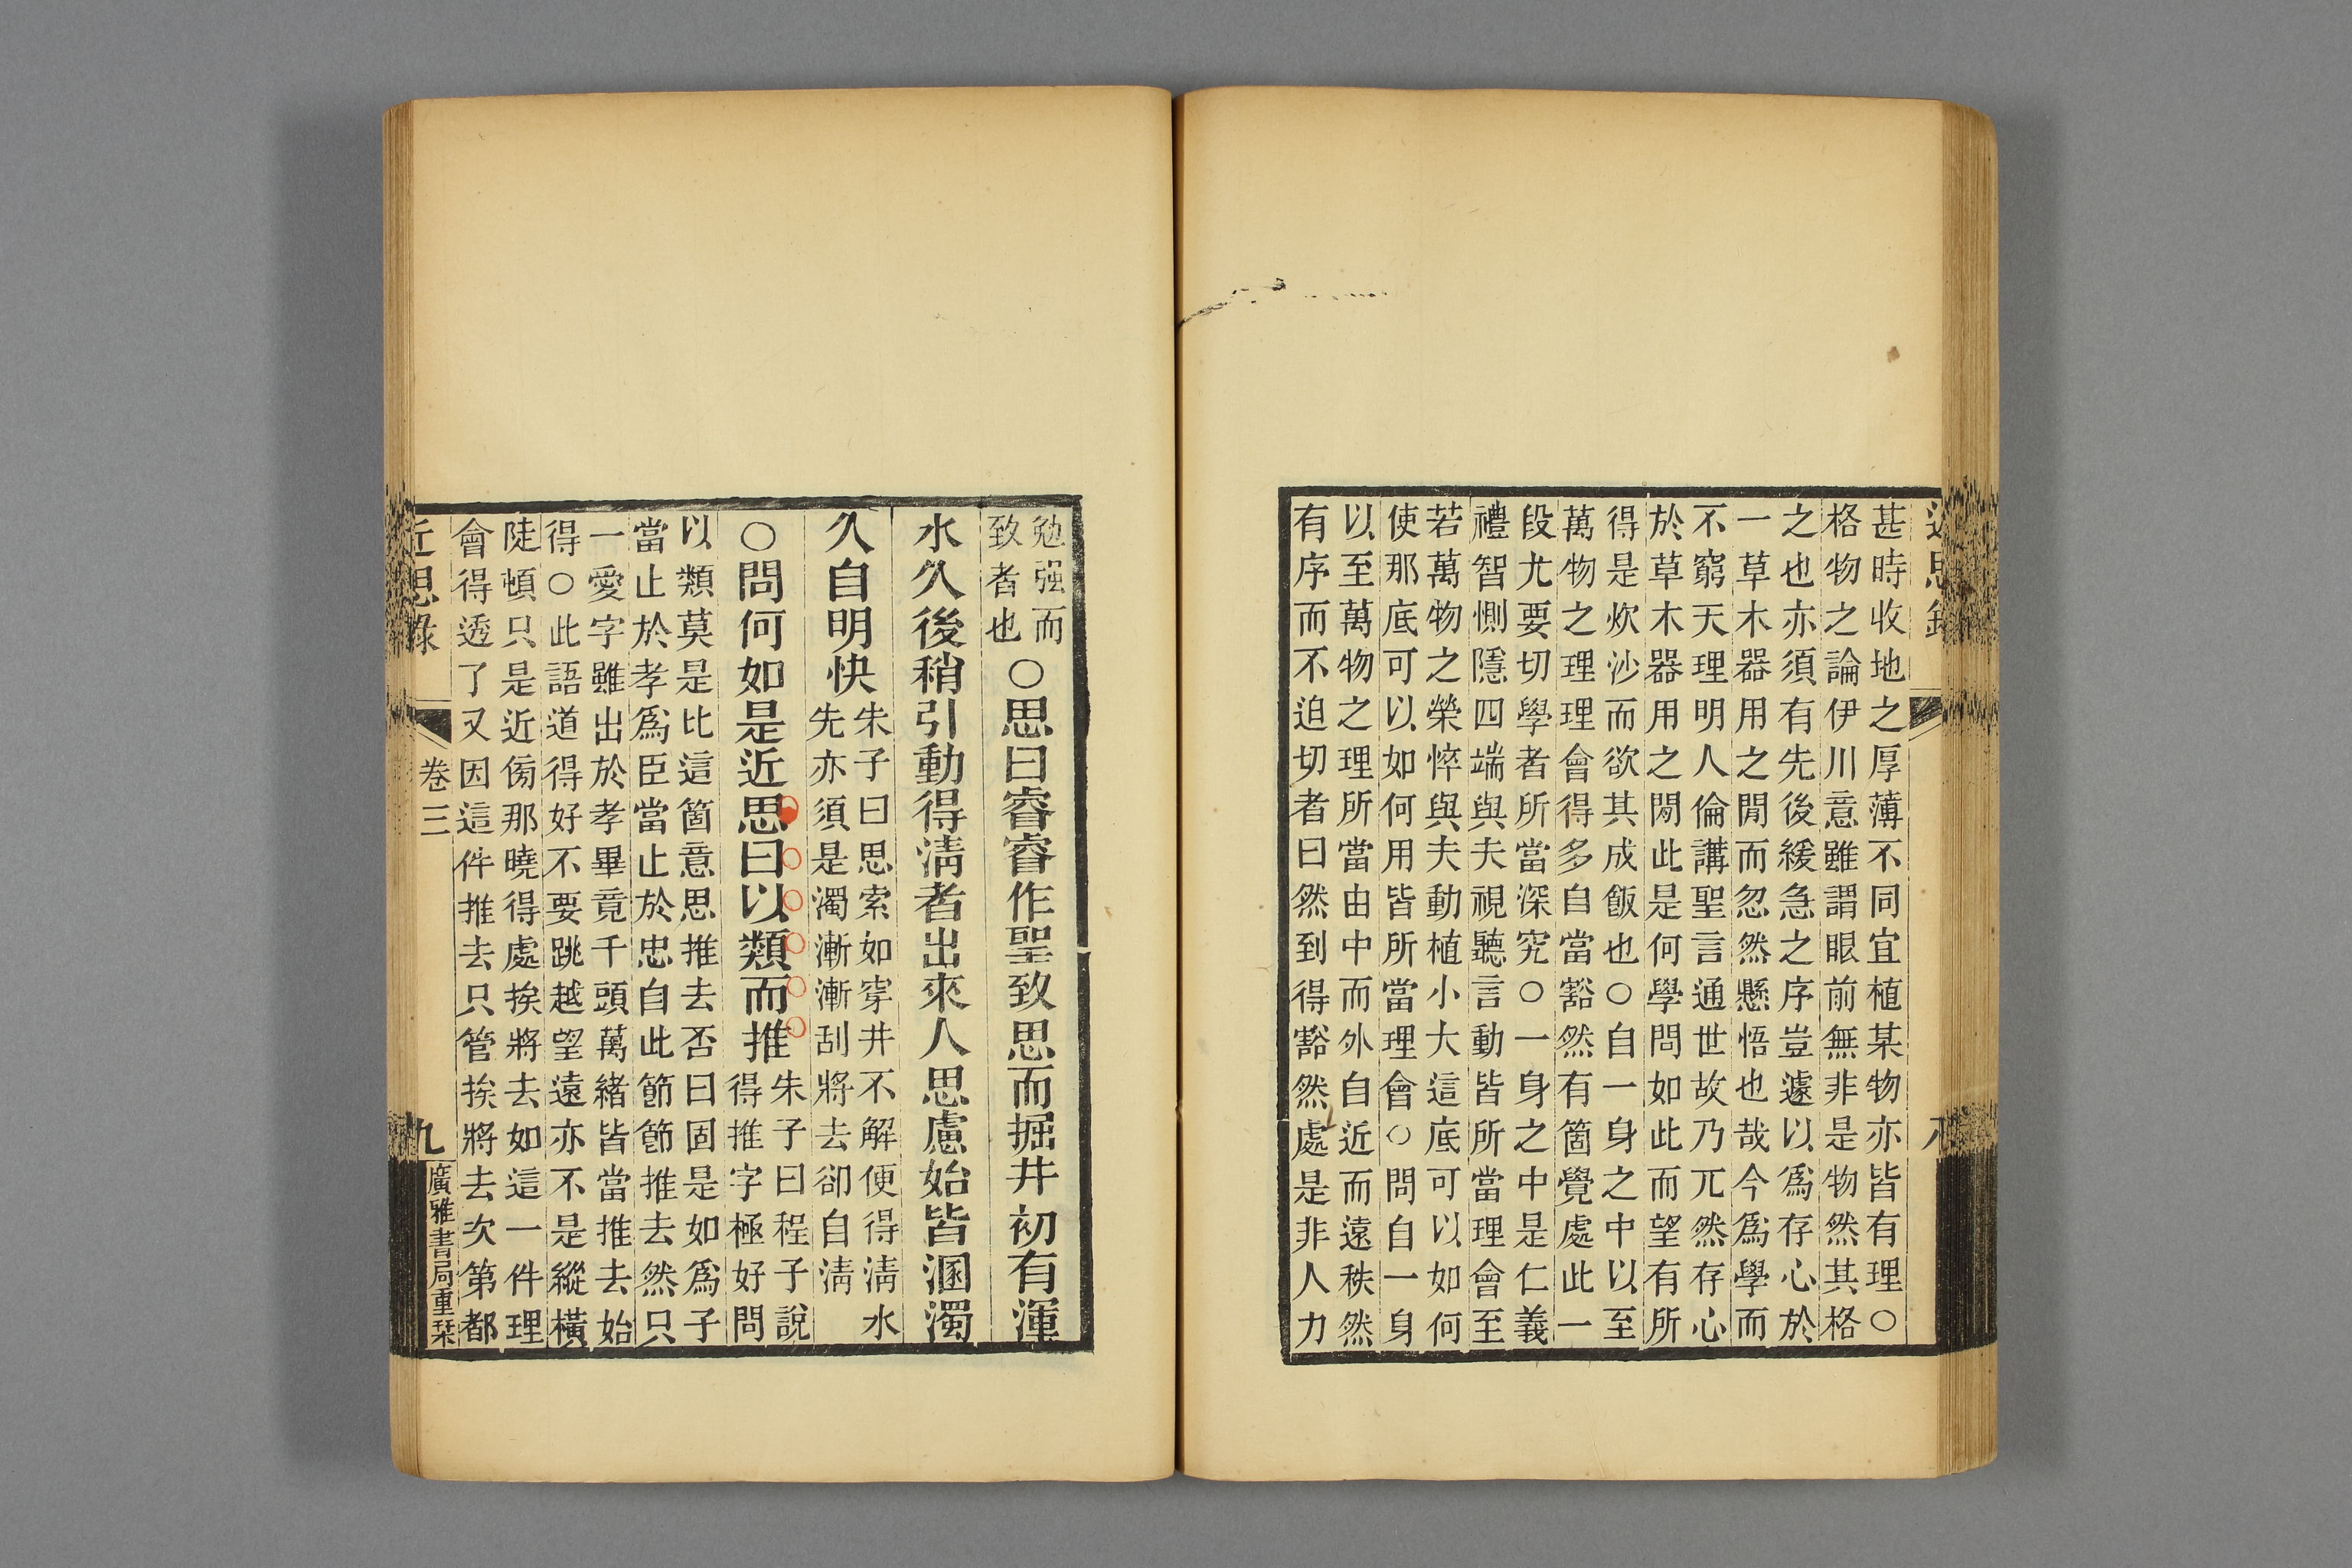 甚時收地之厚薄不同宜植某物亦皆有理○
格物之論伊川意雖謂眼前無非是物然其格
之也亦須有先後緩急之序豈遽以爲存心於
一草木器用之閒而忽然懸悟也哉今爲學而
不窮天理明人倫講聖言通世故乃兀然存心
於草木器用之閒此是何學問如此而望有所
得是炊沙而欲其成飯也○自一身之中以至
萬物之理理會得多自當豁然有箇覺處此一
段尤要切學者所當深究○一身之中是仁義
禮智惻隱四端與夫視聽言動皆所當理會至
若萬物之榮悴與夫動植小大這底可以如何
使那底可以如何用皆所當理會○問自一身
以至萬物之理所當由中而外自近而遠秩然
有序而不迫切者曰然到得豁然處是非人力
勉强而
致者也
○思曰睿睿作聖致思而掘井初有渾
水久後稍引動得淸者出來人思慮始皆溷濁
久自明快
朱子曰思索如穿井不解便得淸水
先亦須是濁漸漸刮將去卻自淸
○問何如是近思曰以類而推
朱子曰程子說
得推字極好問
以類莫是比這箇意思推去否曰固是如爲子
當止於孝爲臣當止於忠自此節節推去然只
一愛字雖出於孝畢竟千頭萬緒皆當推去始
得○此語道得好不要跳越望遠亦不是縱橫
陡頓只是近傍那曉得處挨將去如這一件理
會得透了又因這件推去只管挨將去次第都
近思錄
卷三
九
廣雅書局重栞